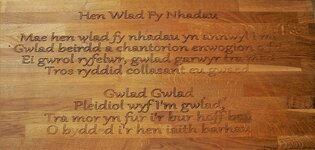 Hen Wlad Fy Nhadau
Mae hen wlad fy nhadau yn annwyl i mi
Gwlad beirdd a chantorion enwogion o
Ei gwrol ryfelwr, gwlad garwyr tra mad
Tros ryddid collasant eu gwaed
Gwlad Gwlad
Pleidiol wyf I'm gwlad,
Tra mor yn fur i'r bur hoff bau
O bydd-d i'r hen iaith barhau